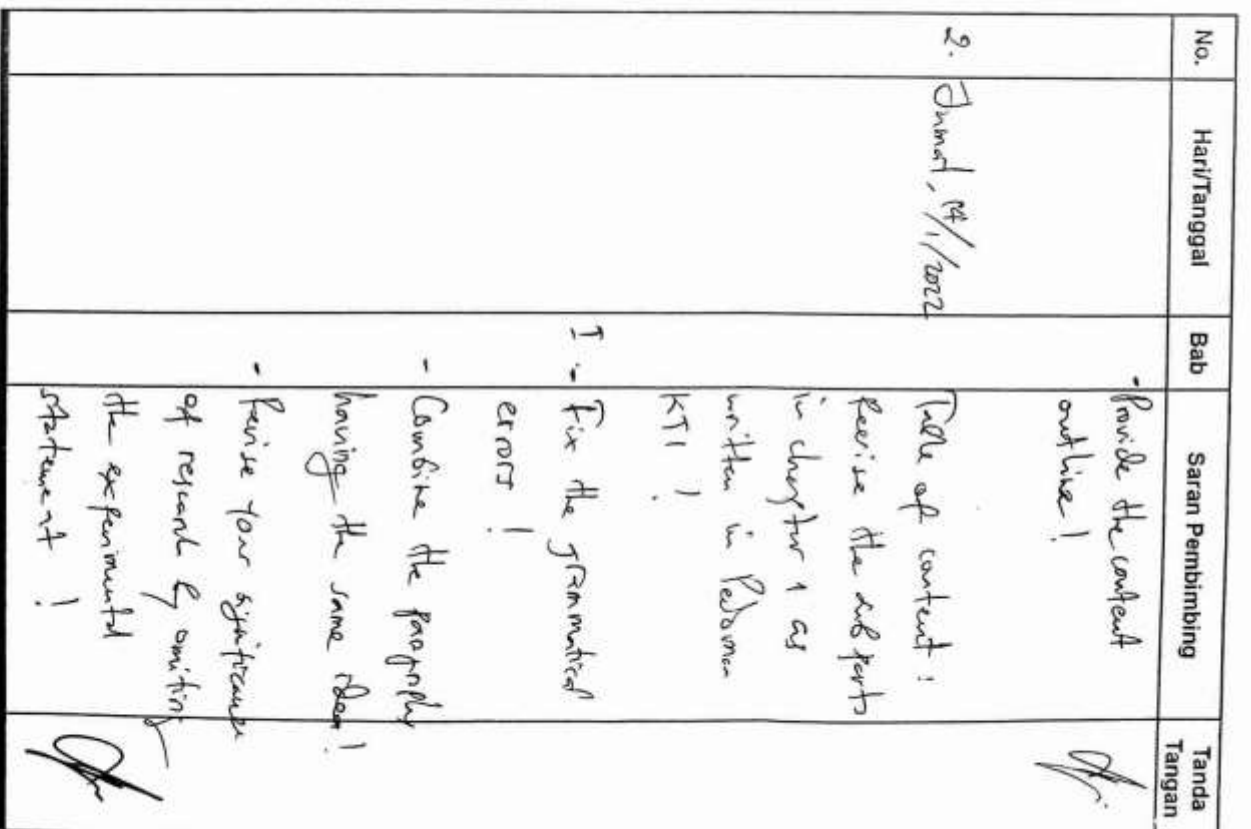 No. Hari/Tanggal Bab Saran Pembimbing Tanda Tangan
- Provide the content
outline!
2. Jumat, 14/1/2022
Table of content :
Revise the sub parts
in chapter 1 as
written in Pedoman
KTI !
I - Fix the grammatical
errors !
- Combine the paragraphs
having the same idea!
- Revise your significance
of research by omiting
the experimental
statement !